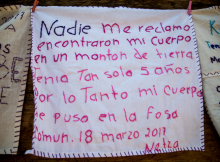 Nadie me reclamo
encontraron mi cuerpo
en un monton de tierra
tenia Tan solo 5 años
por lo Tanto mi cuerpo
se puso en la Fosa
comun. 18 marzo 2017